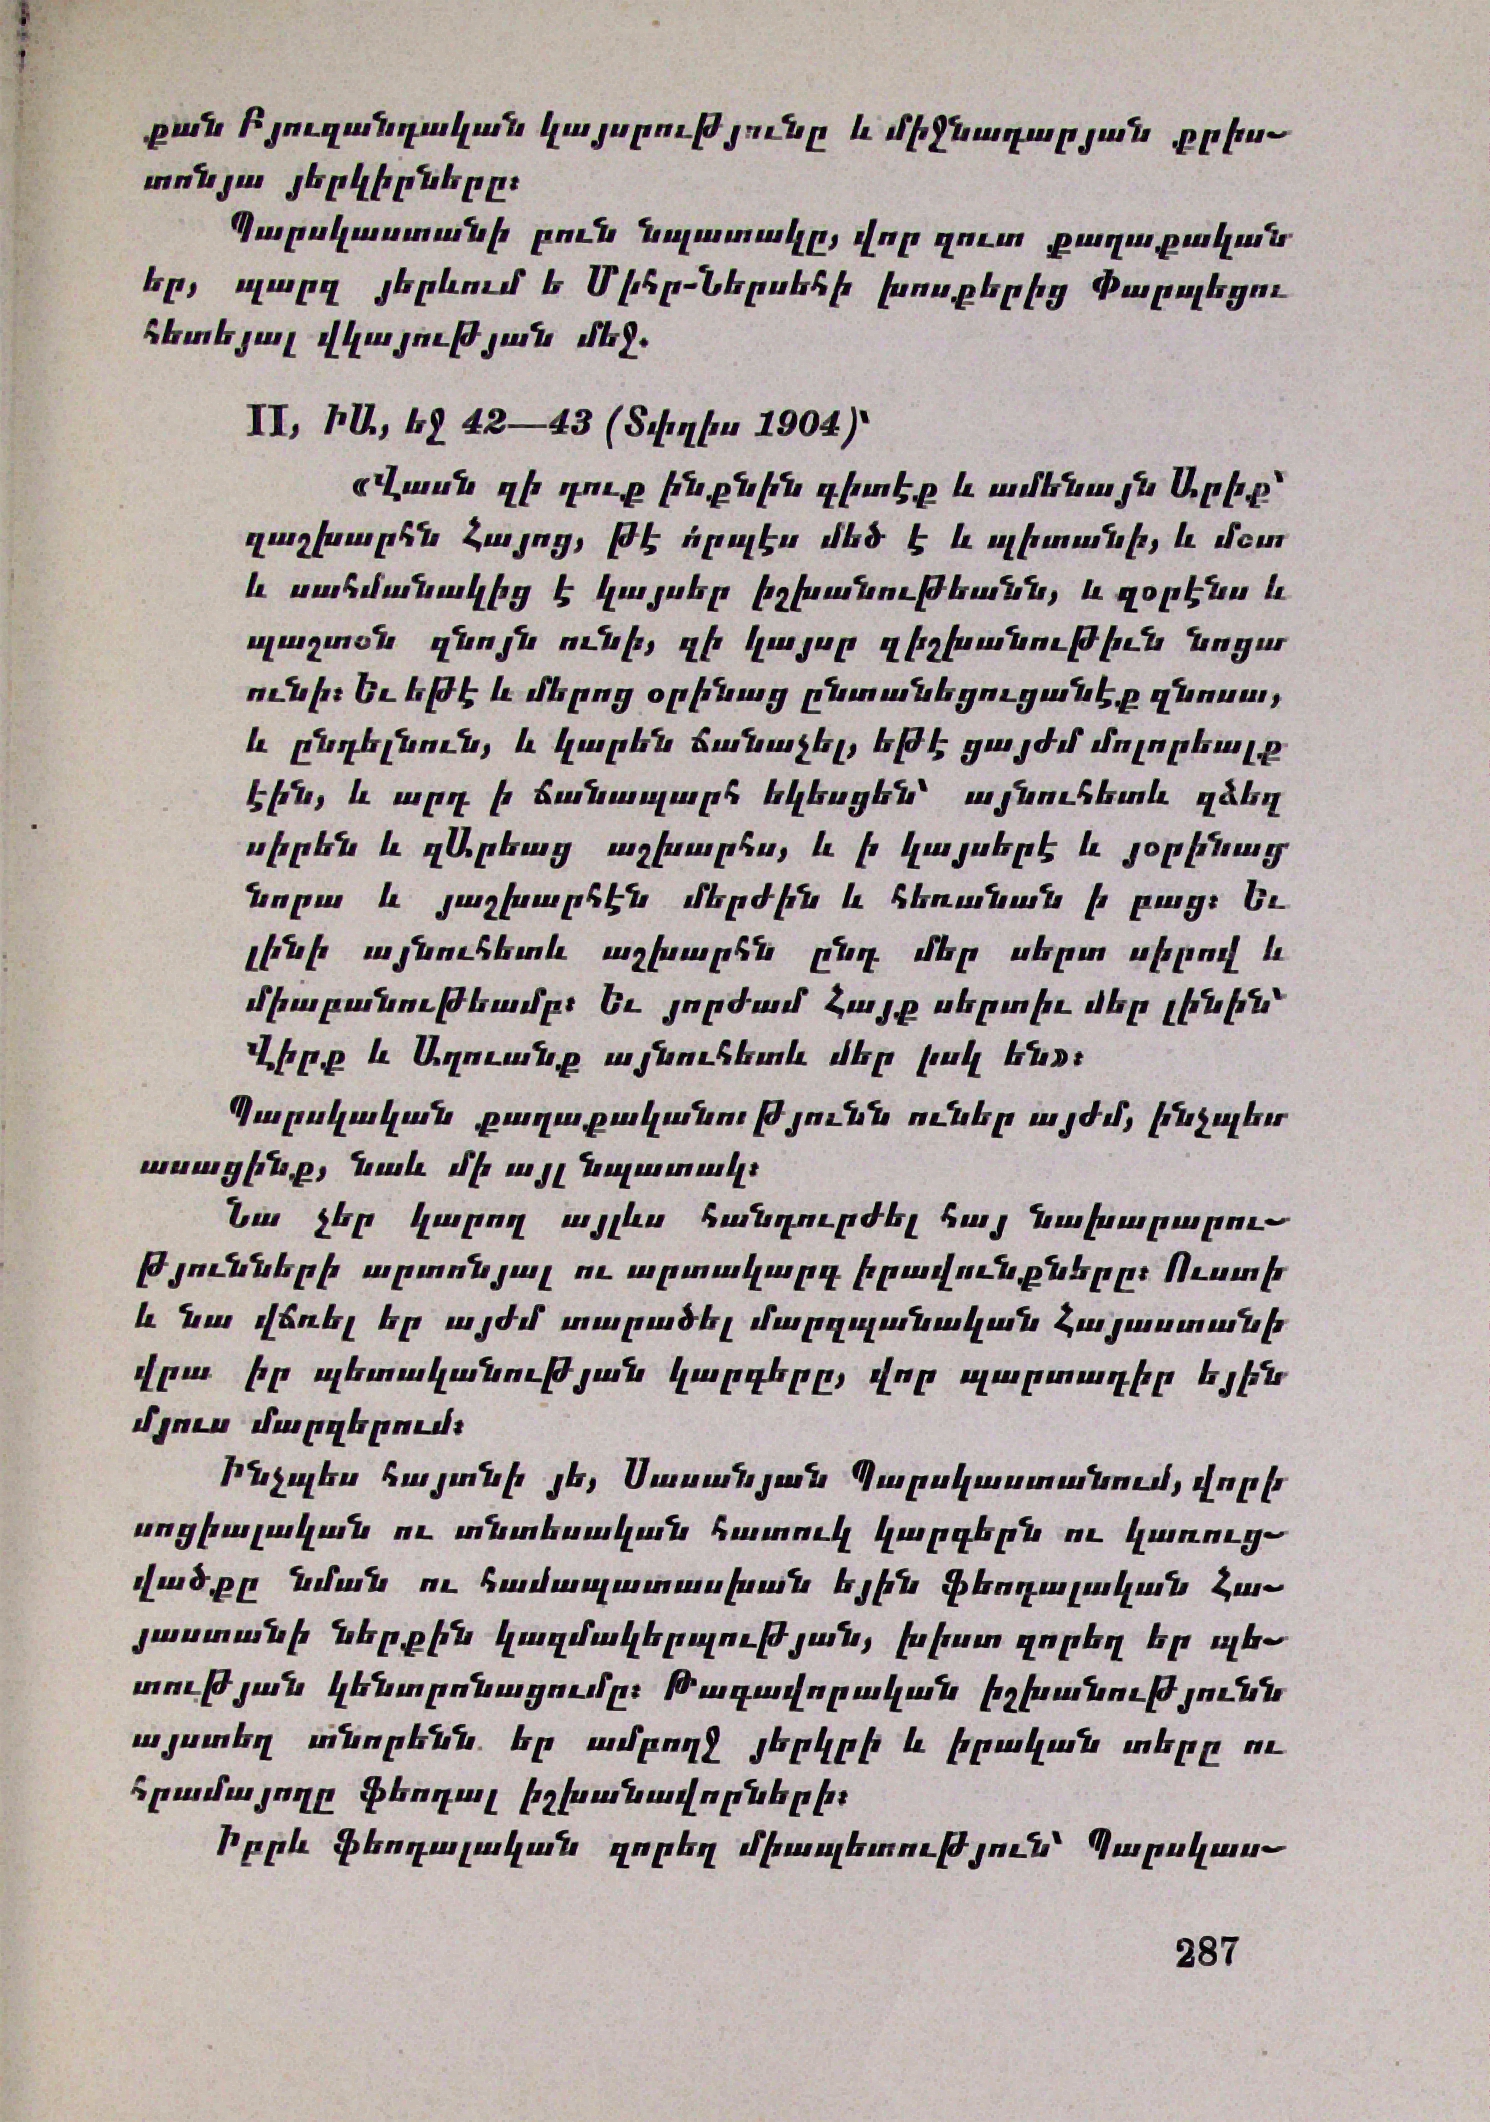 քան Բյուզանդական կայսրությունը և միջնադարյան քրիս-
տոնյա յերկիրները։
Պարսկաստանի բուն նպատակը, վոր զուտ քաղաքական
եր, պարզ յերևում ե Միհր-Ներսեհի խոսքերից Փարպեցու
հետեյալ վկայության մեջ.
II, ԻԱ, եջ 42—43 (Տփղիս 1904)՝
«Վասն զի դուք ինքնին գիտէք և ամենայն Արիք՝
զաշխարհն Հայոց, թէ ո՛րպէս մեծ է և պիտանի, և մօտ
և սահմանակից է կայսեր իշխանութեանն, և զօրէնս և
պաշտօն զնոյն ունի, զի կայսր զիշխանութիւն նոցա
ունի։ Եւ եթէ և մերոց օրինաց ընտանեցուցանէք զնոսա,
և ընդելնուն, և կարեն ճանաչել, եթէ ցայժմ մոլորեալք
էին, և արդ ի ճանապարհ եկեսցեն՝ այնուհետև զձեզ
սիրեն և զԱրեաց աշխարհս, և ի կայսերէ և յօրինաց
նորա և յաշխարհէն մերժին և հեռանան ի բաց։ Եւ
լինի այնուհետև աշխարհն ընդ մեր սերտ սիրով և
միաբանութեամբ։ Եւ յորժամ Հայք սերտիւ մեր լինին՝
Վիրք և Աղուանք այնուհետև մեր իսկ են»։
Պարսկական քաղաքականությունն ուներ այժմ, ինչպես
ասացինք, նաև մի այլ նպատակ։
Նա չեր կարող այլևս հանդուրժել հայ նախարարու-
թյունների արտոնյալ ու արտակարգ իրավունքները։ Ուստի
և նա վճռել եր այժմ տարածել մարզպանական Հայաստանի
վրա իր պետականության կարգերը, վոր պարտադիր եյին
մյուս մարզերում։
Ինչպես հայտնի յե, Սասանյան Պարսկաստանում, վորի
սոցիալական ու տնտեսական հատուկ կարգերն ու կառուց-
վածքը նման ու համապատասխան եյին ֆեոդալական Հա-
յաստանի ներքին կազմակերպության, խիստ զորեղ եր պե-
տության կենտրոնացումը։ Թագավորական իշխանությունն
այստեղ տնորենն եր ամբողջ յերկրի և իրական տերը ու
հրամայողը ֆեոդալ իշխանավորների։
Իբրև ֆեոդալական զորեղ միապետություն՝ Պարսկաս-
287